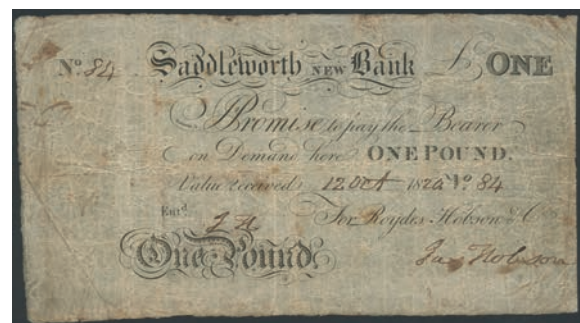 No. 84 Saddleworth NEW Bank £ ONE
I Promise to pay the Bearer
on Demand here ONE POUND.
Value received 12 Oct 182 No 84
Entd. For Roydes, Hobson & Co
One Pound. Jas Hobson